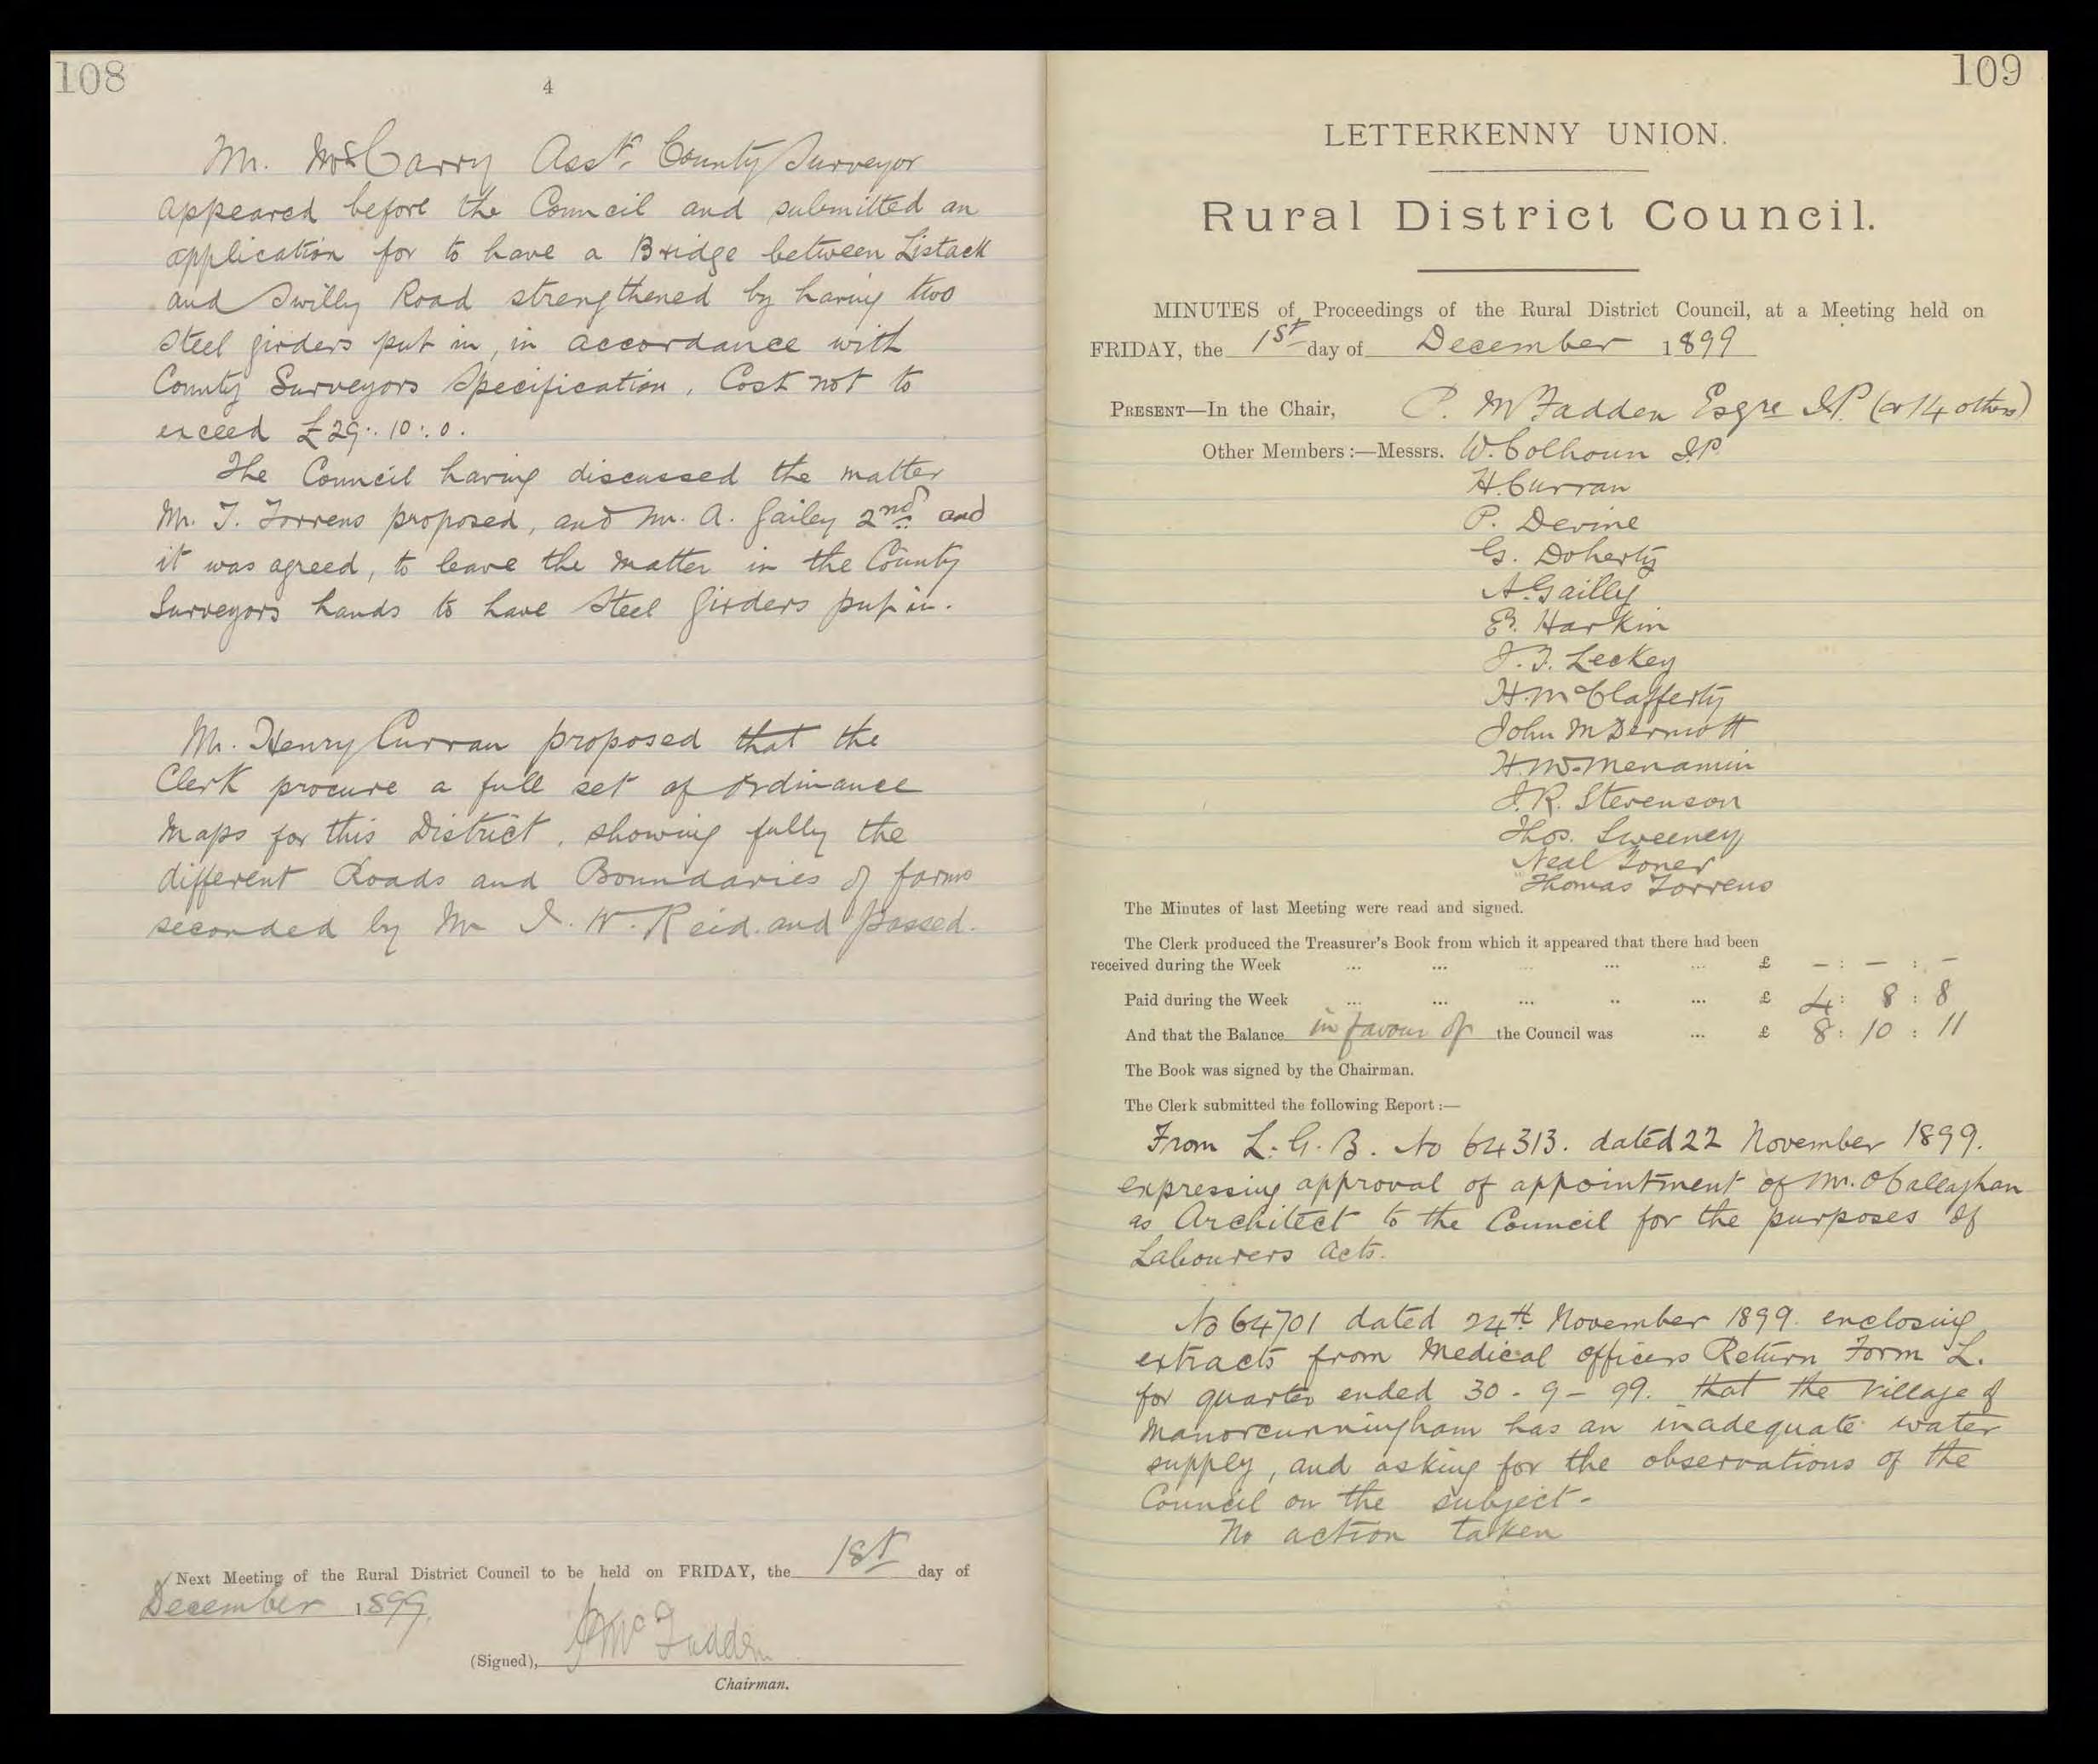 108
4
Mr. McCarry Asst. County Surveyor
appeared before the Council and submitted an
application for to have a Bridge between Listack
and Swilly Road strengthened by having two
steel girders put in, in accordance with
County Surveyors Specification. Cost not to
exceed £29:.10:.0.
The Council having discussed the matter
Mr. T. Torrens proposed, and Mr. A. Gailey 2nd. and
it was agreed, to leave the matter in the County
Surveyors hands to have Steel Girders put in.
Mr. Henry Curran proposed that the
Clerk procure a full set of Ordinance
Maps for this District, showing fully the
different Roads and Boundaries of farms
seconded by Mr J. W. Reid. and passed.
Next Meeting of the Rural District Council to be held on FRIDAY, the 1st day of
December 1899.
(Signed), McFadden
Chairman.
109
LETTERKENNY UNION.
Rural District Council.
MINUTES of Proceedings of the Rural District Council, at a Meeting held on
FRIDAY, the 1st day of December 1899
PRESENT—In the Chair, P. McFadden Esqre J.P. (& 14 others)
Other Members:—Messrs. W. Colhoun J.P.
H. Curran
P. Devine
G. Doherty
A. Gailly
E. Harkin
J. T. Leckey
H. McClafferty
John McDermott
H. McMenamin
J. R. Stevenson
Thos. Sweeney
Neal Toner
Thomas Torrens
The Minutes of last Meeting were read and signed.
The Clerk produced the Treasurer's Book from which it appeared that there had been
received during the Week ... ... ... ... ... £ — : — : —
Paid during the Week ... ... ... .. ... £ 4 : 8 : 8
And that the Balance in favour of the Council was ... £ 8 : 10 : 11
The Book was signed by the Chairman.
The Clerk submitted the following Report:—
From L. G. B. No 64313. dated 22 November 1899.
expressing approval of appointment of Mr. O'Callaghan
as Architect to the Council for the purposes of
Labourers Acts.
No 64701 dated 24th November 1899. enclosing
extracts from Medical officers Return Form L.
for quarter ended 30 - 9 - 99. that the village of
Manorcunningham has an inadequate water
supply, and asking for the observations of the
Council on the subject -
No action taken